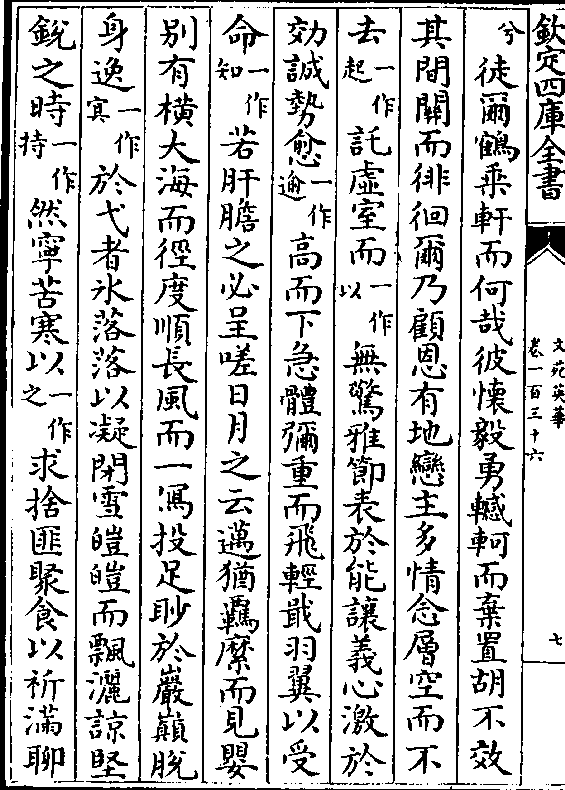 欽定四庫全書
文苑英華
卷一百三十六
七
兮徒爾鶴乘軒而何哉彼懷毅勇轗軻而棄置胡不效
其間關而徘徊爾乃顧恩有地戀主多情念層空而不
去一作起託虛室而一作以無驚雅節表於能讓義心激於
効誠勢愈一作逾高而下急體彌重而飛輕戢羽翼以受
命一作知若肝膽之必呈嗟日月之云邁猶羈縻而見嬰
別有橫大海而徑度順長風而一寫投足眇於巖巔脫
身逸一作寘於弋者氷落落以凝閉雪皚皚而飄灑諒堅
銳之時一作持然寧苦寒以一作之求捨匪聚食以祈滿聊